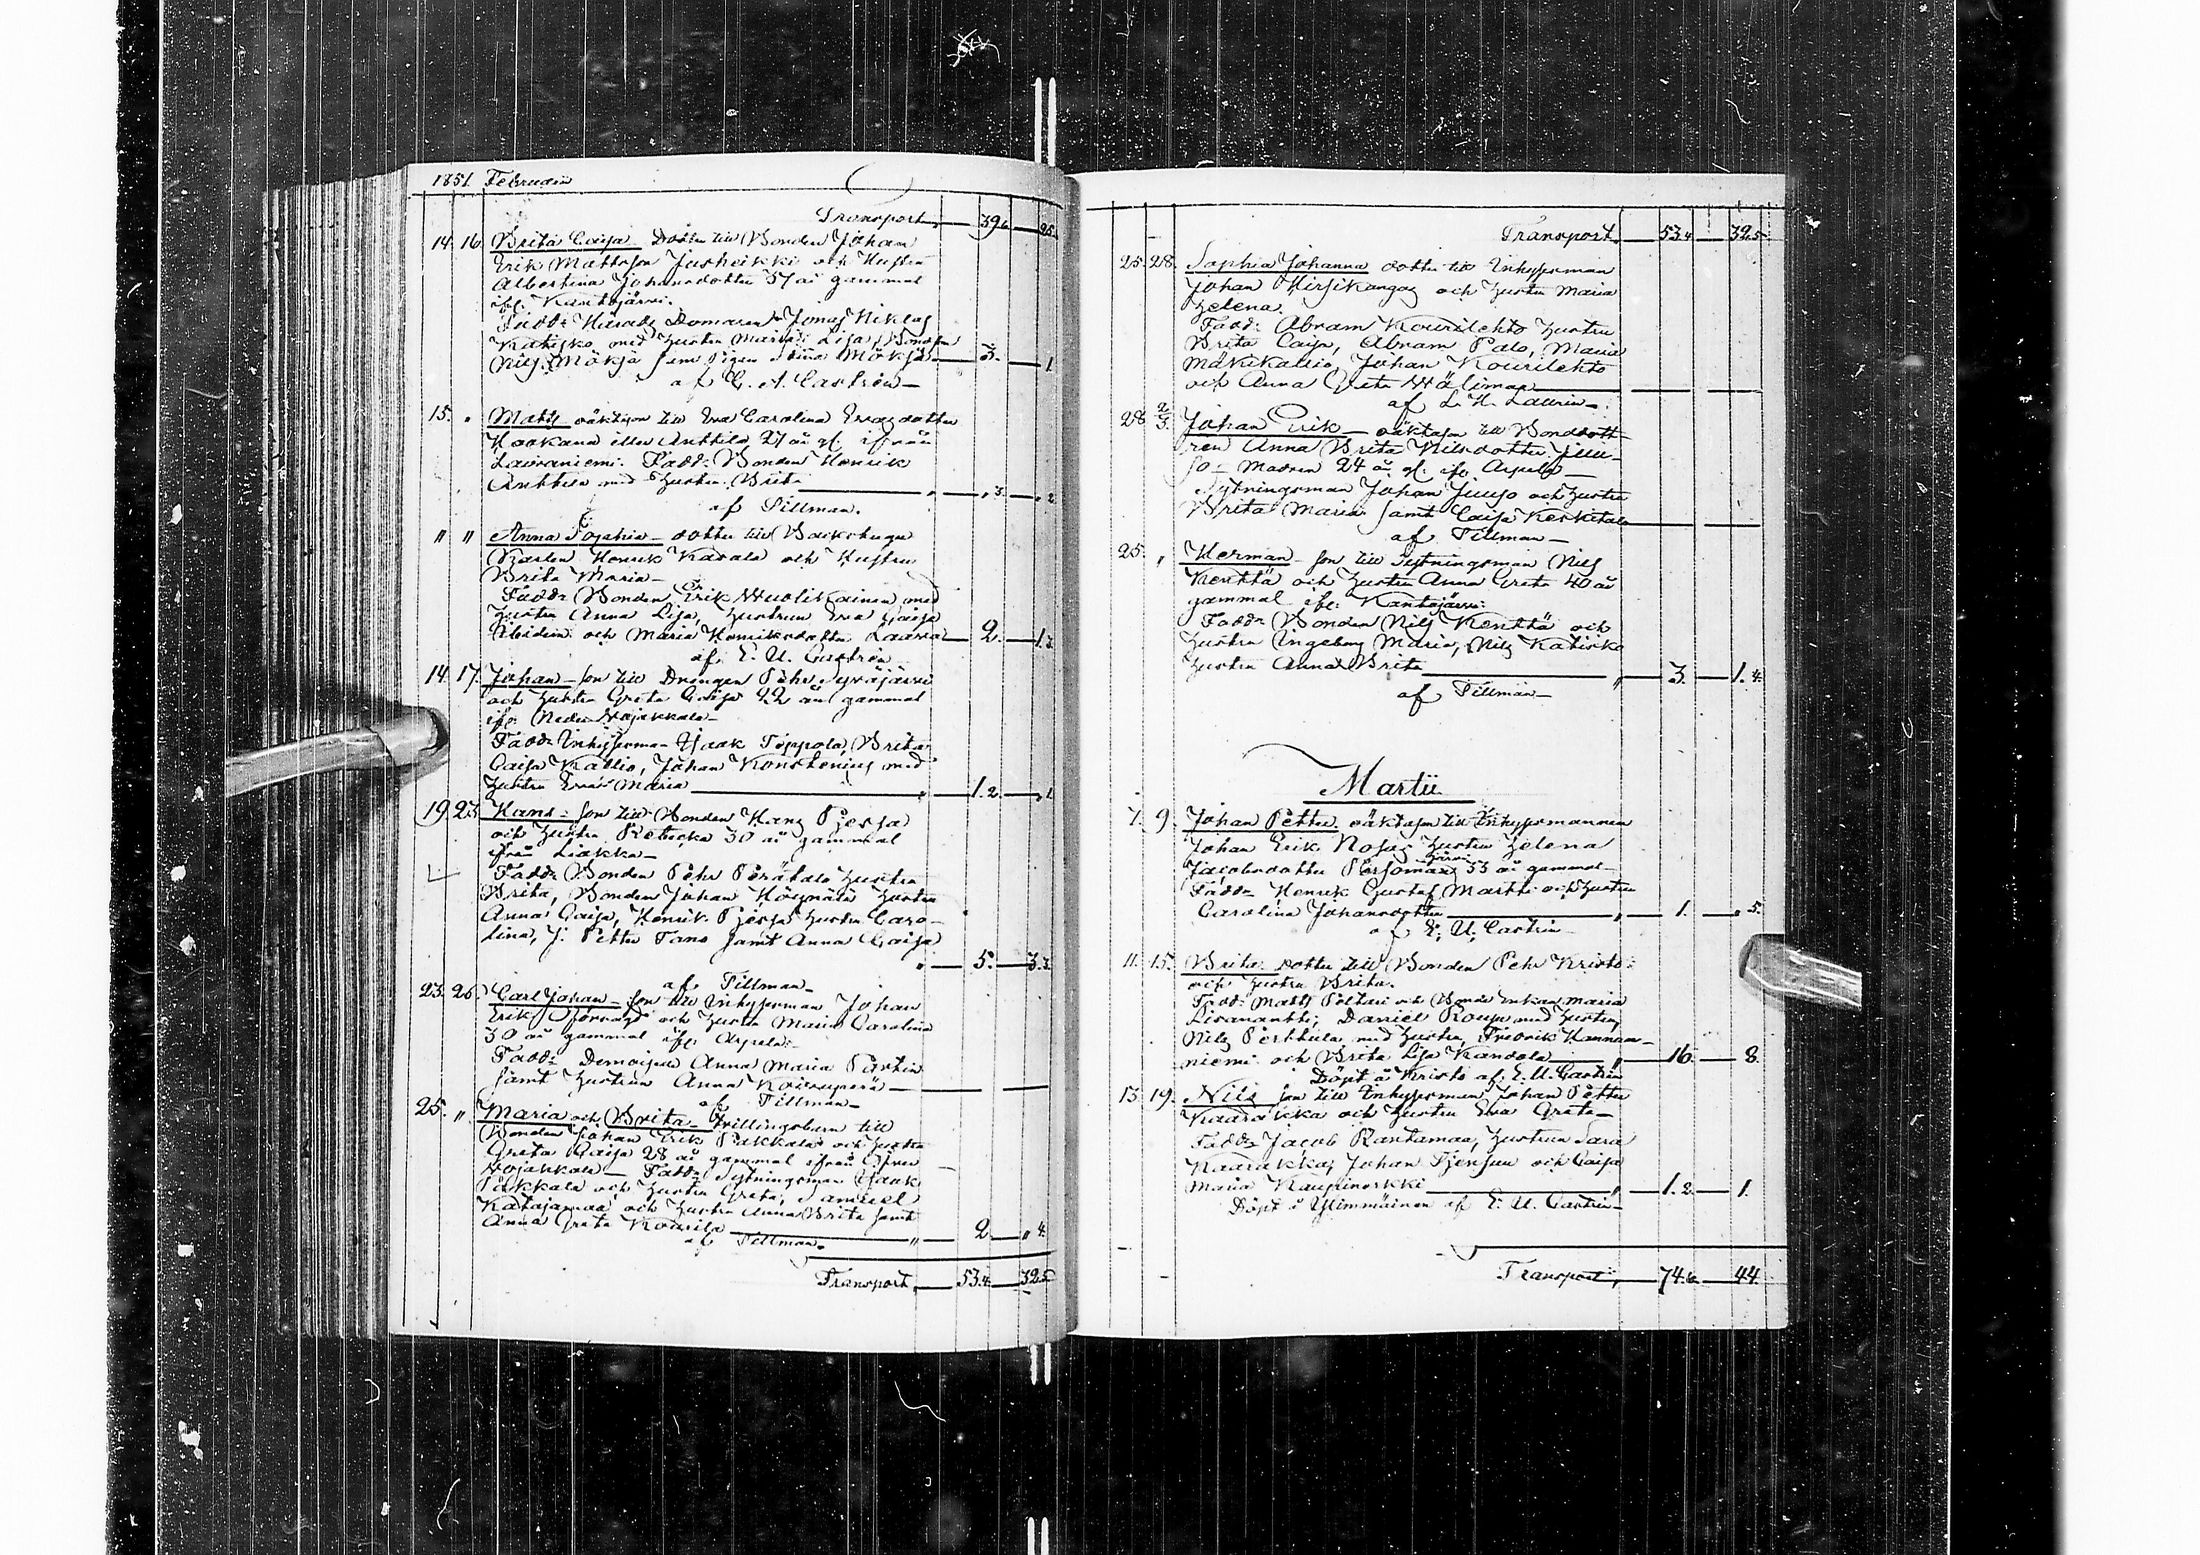 1851 Februarii
Transport, 39.6. 25.
14. 16. Brita Caisa Dotter till Bonden Johan
Erik Mattsson Juskeikki och Hustru
Albertina Johansdotter 37 år gammal
ifr. Kantojärvi.
Fadd: Härads Domaren Jonas Niklas
Katisko med hustru Maria Lisa, Bonden
Nils Mäkjä samt Pigan Stina Mäkjä 3. 1
af C. A. Castrén
15. " Matts oäktson till Eva Carolina Ersdotter
Kookana eller Anttila 27 år gl. ifrån
Lavianiemi. Fadd: Bonden Henrik
Anttila med hustru Brita " 3. " 2
af Tillman.
" " Anna Sophia dotter till Backstugu
Karlen Henrik Karala och Hustru
Brita Maria
Fadd: Bonden Erik Huolikainen med
hustru Anna Lisa, hustrun Eva Caisa
och Maria Henriksdotter Lauria 2. 1.3.
af E. U. Castrén
14. 17. Johan son till Drängen Pehr Syväjärvi
och hustru Greta Caisa 22 år gammal
ifr. Neder Wojakkala
Fadd: Inhysesman Isaak Töppola, Brita
Caisa Kallio, Johan Konstenius med
hustru Eva Maria " 1.2. " 1
19. 23. Hans son till Bonden Hans Pjesja
och hustru Rebecka 30 år gammal
ifrån Liakka
Fadd: Bonden Pehr Perätalo hustru
Brita, Bonden Johan hustru
Anna Caisa, Henrik Pjesja hustru Caro-
lina, J. Petter Tano samt Anna Caisa
" 5. 3.3.
af Tillman
23. 26. Carl Johan son till Inhysesman Johan
Erik och hustru Maria Carolina
30 år gammal ifr. Arpela
Fadd: Demoiselle Anna Maria Portin
samt hustrun Anna
af Tillman
25. " Maria och Brita Tvillingsbarn till
Bonden Johan Erik Pakkala och hustru
Greta Caisa 28 år gammal ifrån Öfver
Wojakkala Fadd: Nytningsman Isaak
Pakkala och hustru Greta, Samuel
Katajamaa och hustru Anna Brita samt
Anna Greta Kourila " 2. " 4.
af Tillman.
Transport, 53.4. 32.5
Transport, 53.4. 32.5.
25. 28. Sophia Johanna dotter till Inhysesman
Johan Hirsikangas och hustru Maria
Helena.
Fadd: Abram Kourilehto hustru
Brita Caisa, Abram Palo, Maria
Mäkikallio, Johan Kourilehto
och Anna Greta Wäliman
af L. H. Laurin.
28 2/3 Johan Erik oäktason till Bondedott-
ren Anna Brita Nilsdotter Juu-
so Modren 24 år gl. ifr. Arpela
Nytningsman Johan Juuso och hustru
Brita Maria samt Caisa Keskitalo
af Tillman
25. " Herman son till Nytningsman Nils
Kenttä och hustru Anna Greta 40 år
gammal ifr. Kantojärvi.
Fadd: Bonden Nils Kenttä och
hustru Ingeborg Maria, Nils Katisko
hustru Anna Brita " 3. 1.4.
af Tillman
Martii
7. 9. Johan Petter oäktason till Inhysesmannen
Johan Erik Nosas hustru Helena
Jacobsdotter 33 år gammal
Fadd: Henrik Gustaf Martti och hustru
Carolina Johansdotter " 1. " 5.
af E. U. Castrén
11. 15. Brita dotter till Bonden Pehr Kristo
och hustru Brita.
Fadd: Matts och Bonde Enkan Maria
Lisanantti, Daniel med hustru,
Nils Perttula med hustru, Fredrik Hannan-
niemi och Brita Lisa Kandola " 16. 8.
Döpt å Kristo af E. U. Castrén
13. 19. Nils son till Inhysesman Johan Petter
Naarakka och hustru Eva Greta
Fadd: Jacob Rantamaa, hustrun Sara
Naarakka, Johan och Caisa
Maria " 1.2. 1.
Döpt i Ylimmäinen af E. U. Castrén
Transport, 74.6. 44.